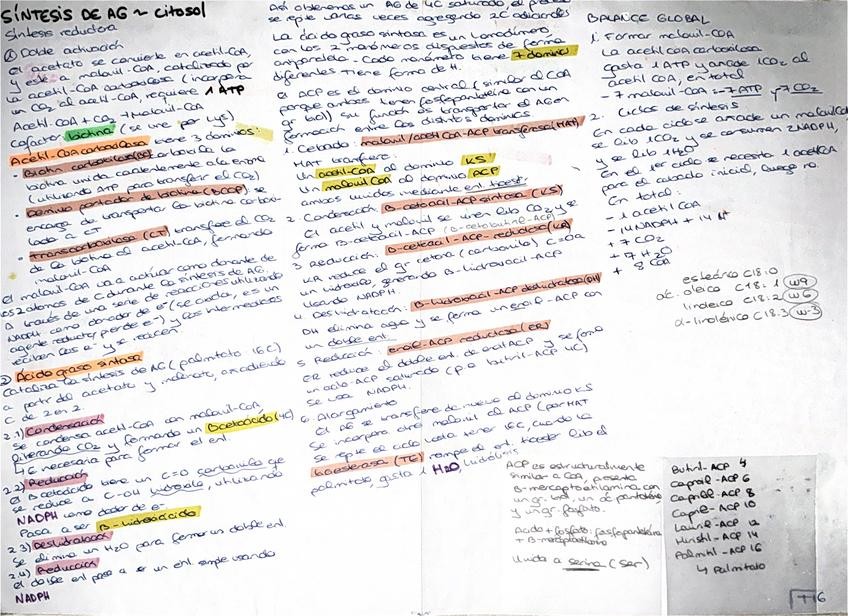 SÍNTESIS DE AG ~ CITOSOL
Síntesis reductora
① Doble activación
El acetato se convierte en acetil-CoA,
y éste a malonil-CoA, catalizado por
la acetil-CoA carboxilasa (incorpora
un CO2 al acetil-CoA, requiere 1 ATP
Acetil-CoA + CO2 → malonil-CoA
cofactor: biotina (se une por Lys)
Acetil-CoA carboxilasa tiene 3 dominios:
• Biotin carboxilasa (BC) carboxila la
biotina unida covalentemente a la enzima
(utilizando ATP para transferir el CO2)
• Dominio portador de biotina (BCCP) se
encarga de transportar la biotina carboxi-
lada a CT
• Transcarboxilasa (CT) transfiere el CO2
de la biotina al acetil-CoA, formando
malonil-CoA
El malonil-CoA va a actuar como donante de
los 2 átomos de C durante la síntesis de AG.
A través de una serie de reacciones utilizando
NADPH como donador de e- (se oxida, es un
agente reductor, pierde e-) y los intermedios
reciben esos e- y se reducen.
② Ácido graso sintasa
Cataliza la síntesis de AG (palmitato 16C)
a partir del acetato y malonato, añadiendo
C de 2 en 2.
2.1) Condensación
Se condensa acetil-CoA con malonil-CoA
liberando CO2 y formando un βcetoácido (4C)
↳ E necesaria para formar el enl.
2.2) Reducción
El βcetoácido tiene un C=O carbonilo que
se reduce a C-OH hidroxilo, utilizando
NADPH como dador de e-
Pasa a ser β-hidroxiácido
2.3) Deshidratación
Se elimina un H2O para formar un doble enl.
2.4) Reducción
el doble enl pasa a ser un enl. simple usando
NADPH
Así obtenemos un AG de 4C saturado, el proceso
se repite varias veces agregando 2C adicionales
La ácido graso sintasa es un homodímero,
con los 2 monómeros dispuestos de forma
antiparalela. Cada monómero tiene 7 dominios
diferentes tiene forma de H.
El ACP es el dominio central (similar al CoA
porque ambos tienen fosfopanteteína con un
gr tiol) su función es transportar el AG en
formación entre los distintos dominios.
1. Cebado: malonil/acetil CoA-ACP transferasa (MAT)
MAT transfiere:
Un acetil-CoA al dominio KS
Un malonil CoA al dominio ACP
ambos unidos mediante enl. tioéster
2. Condensación: β-cetoacil-ACP sintasa (KS)
El acetil y malonil se unen lib CO2 y se
forma β-cetoacil-ACP (β-cetobutiril-ACP)
3. Reducción: β-cetoacil-ACP-reductasa (KR)
KR reduce el gr cetona (carbonilo) C=O a
un hidroxilo, generando β-hidroxiacil-ACP
usando NADPH
4. Deshidratación: β-hidroxiacil-ACP deshidratasa (DH)
DH elimina agua y se forma un enoil-ACP con
un doble enl.
5. Reducción: enoil-ACP reductasa (ER)
ER reduce el doble enl. de enoil ACP y se forma
un acilo-ACP saturado (p.e butiril-ACP 4C)
Se usa NADPH.
6. Alargamiento
El AG se transfiere de nuevo al dominio KS
Se incorpora otro malonil al ACP (por MAT
Se repite el ciclo hasta tener 16C, cuando la
tioesterasa (TE) rompe el enl. tioéster lib el
palmitato, gasta 1 H2O hidrólisis
ACP es estructuralmente
similar a CoA, presenta
β-mercaptoetilamina con
un gr. tiol, un ác pantoténico
y un gr. fosfato.
Ácido + fosfato: fosfopanteteína
+ β-mercaptoetilamina
Unida a serina (Ser)
BALANCE GLOBAL
1. Formar malonil-CoA
La acetil CoA carboxilasa
gasta 1 ATP y añade 1CO2 al
acetil CoA, en total
- 7 malonil-CoA = - 7 ATP y 7 CO2
2. Ciclos de síntesis
En cada ciclo se añade un malonil CoA
se lib 1CO2 y se consumen 2NADPH,
y se lib 1H2O
En el 1er ciclo se necesita 1 acetil CoA
para el cebado inicial, luego no.
En total:
- 1 acetil CoA
- 14 NADPH + 14 H+
+ 7 CO2
+ 7 H2O
+ 8 CoA
esteárico C18:0
ác. oleico C18:1 (ω9)
linoleico C18:2 (ω6)
α-linolénico C18:3 (ω-3)
Butiril-ACP 4
Caproil-ACP 6
Capril-ACP 8
Capril-ACP 10
Lauril-ACP 12
Miristil-ACP 14
Palmitil-ACP 16
↳ Palmitato
T16